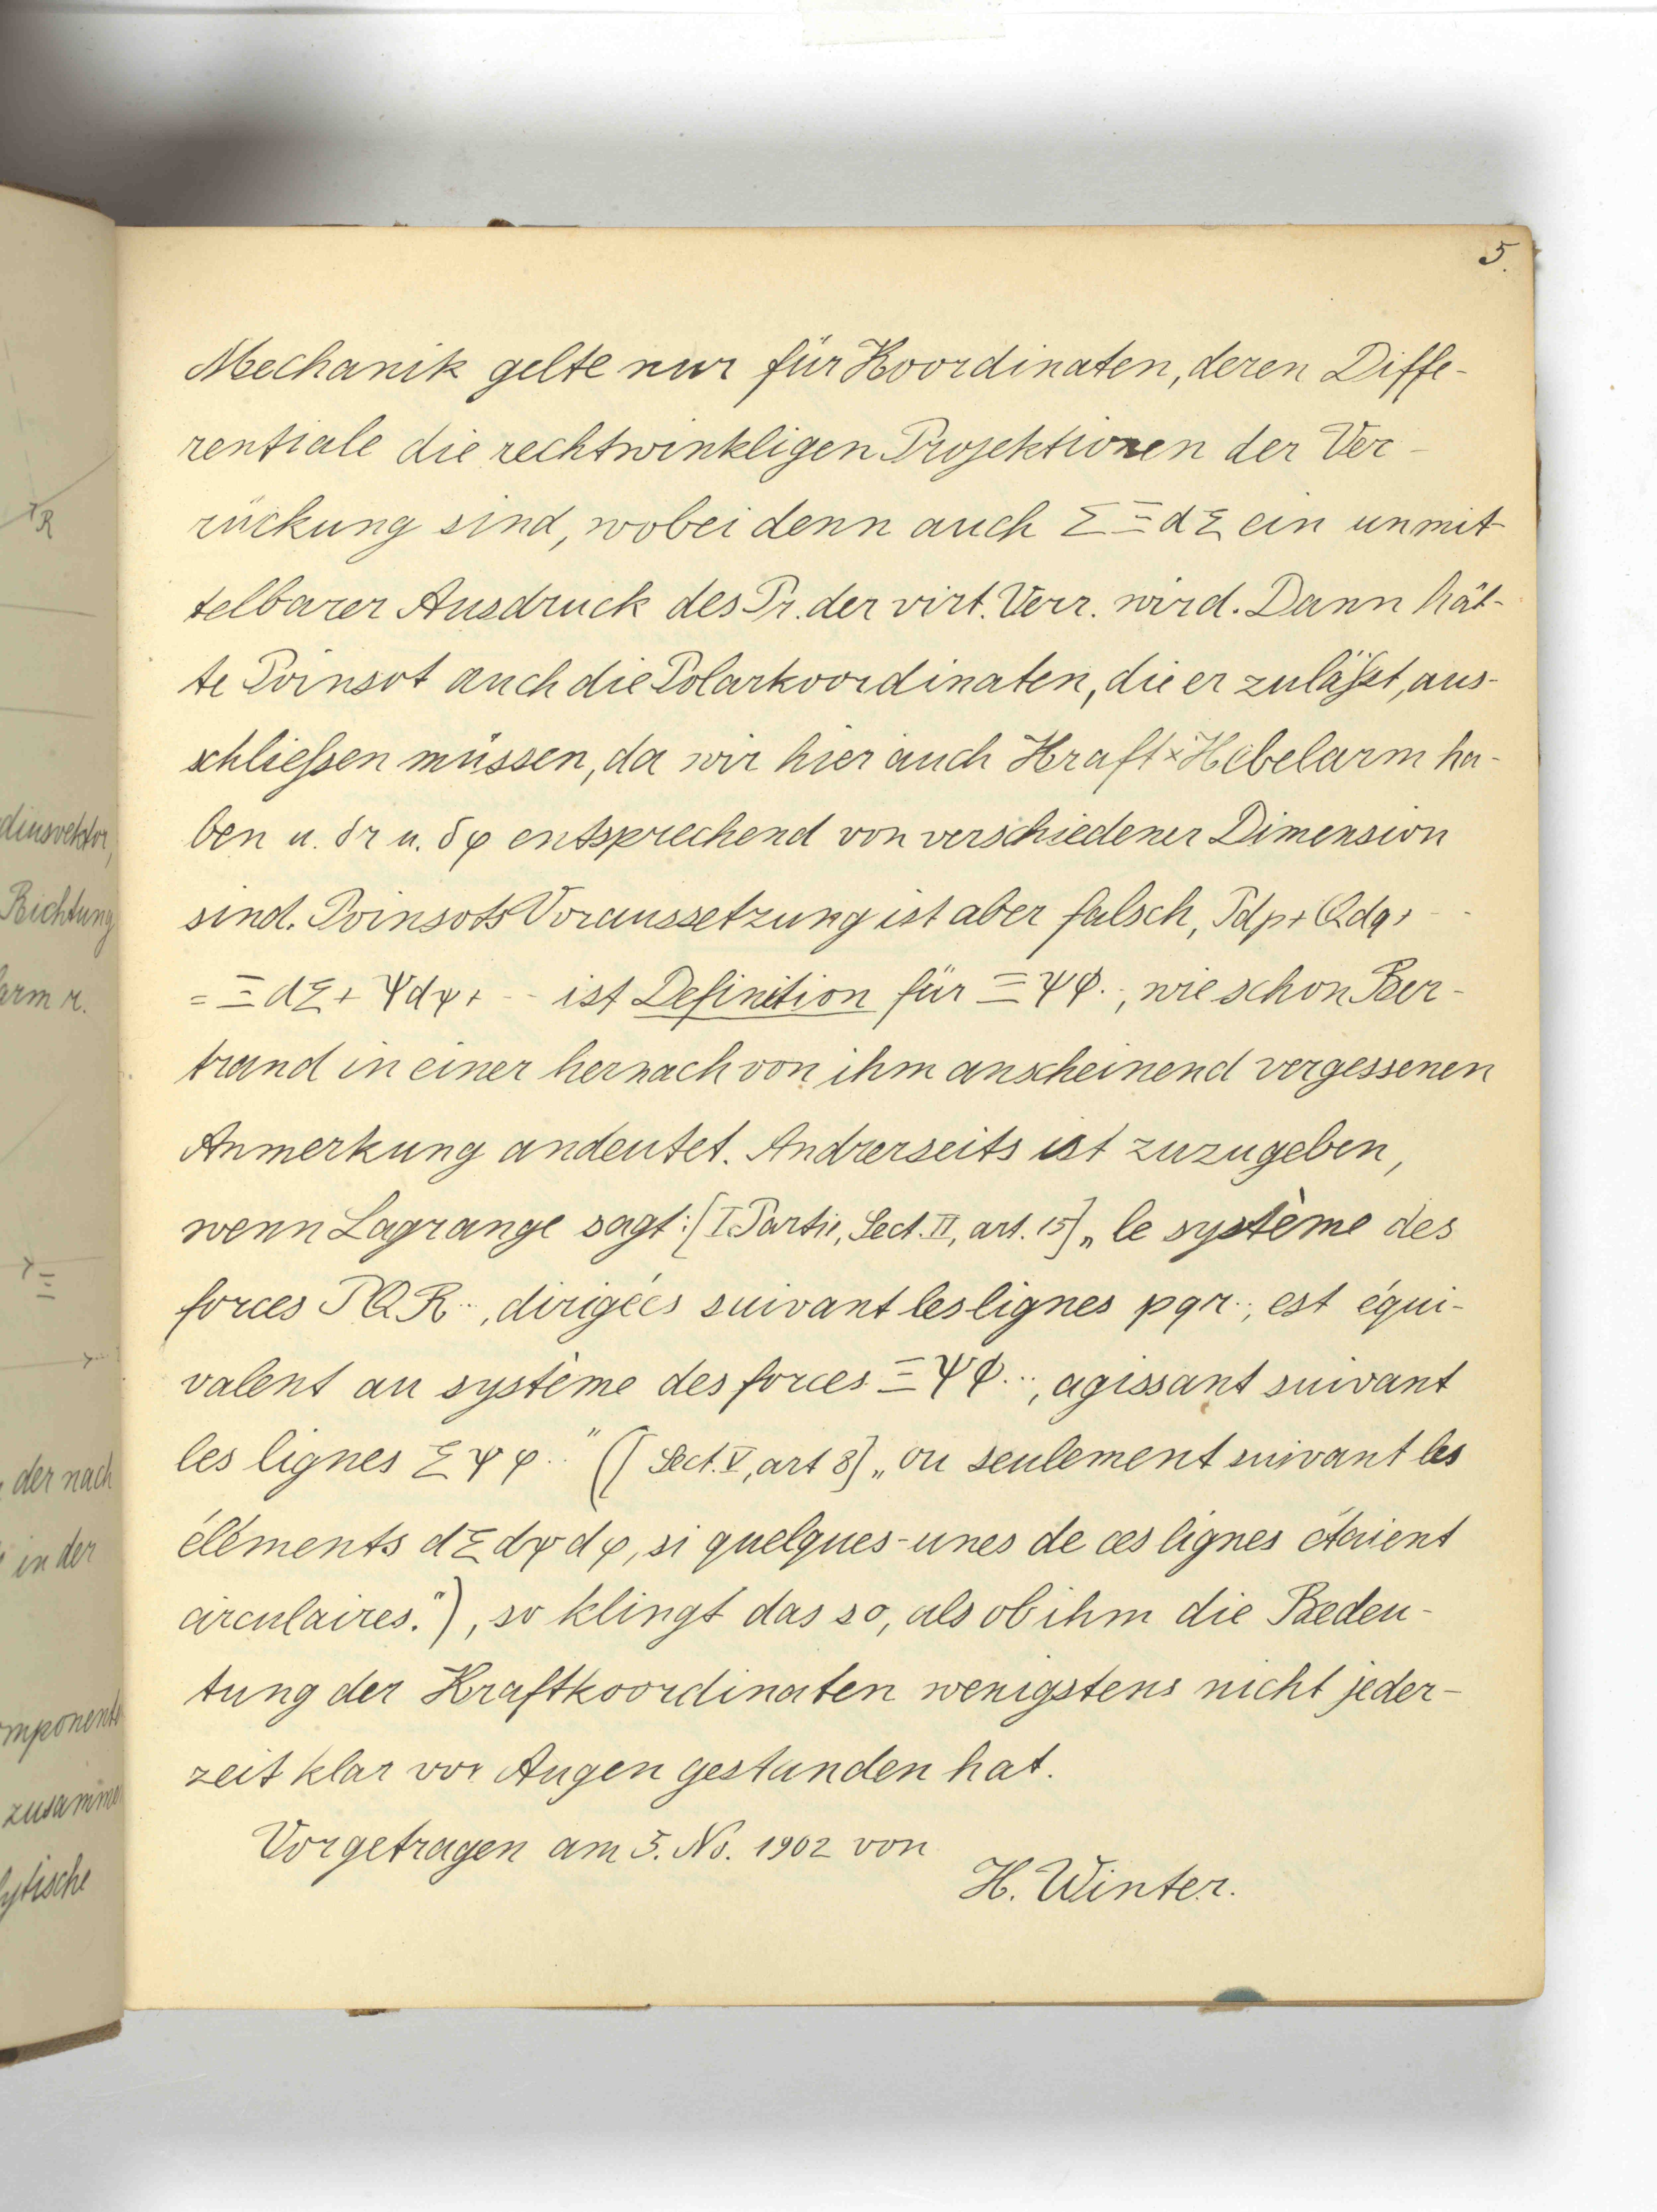 5.
Mechanik gelte nur für Koordinaten, deren Diffe-
rentiale die rechtwinkligen Projektionen der Ver-
rückung sind, wobei denn auch ΣΞdξ ein unmit-
telbarer Ausdruck des Pr. der virt. Verr. wird. Dann hät-
te Poinsot auch die Polarkoordinaten, die er zuläßt, aus-
schließen müssen, da wir hier auch Kraft × Hebelarm ha-
ben u. δr u. δφ entsprechend von verschiedener Dimension
sind. Poinsots Voraussetzung ist aber falsch, Pdp + Qdq + - -
= Ξdξ + Ψdψ + - - ist Definition für ΞΨΦ.., wie schon Ber-
trand in einer hernach von ihm anscheinend vergessenen
Anmerkung andeutet. Andrerseits ist zuzugeben,
wenn Lagrange sagt: [I. Partie, Sect. II, art. 15] „le système des
forces PQR.., dirigées suivant les lignes pqr.., est équi-
valent au système des forces ΞΨΦ..., agissant suivant
les lignes ξψφ.." ([Sect. V, art 8] „ou seulement suivant les
éléments dξdψdφ, si quelques-unes de ces lignes étaient
circulaires."), so klingt das so, als ob ihm die Bedeu-
tung der Kraftkoordinaten wenigstens nicht jeder-
zeit klar vor Augen gestanden hat.
Vorgetragen am 5. No. 1902 von
H. Winter.
R
dinsvektor,
Richtung
arm r.
Ξ
der nach
in der
mponente
zusamme
lytische